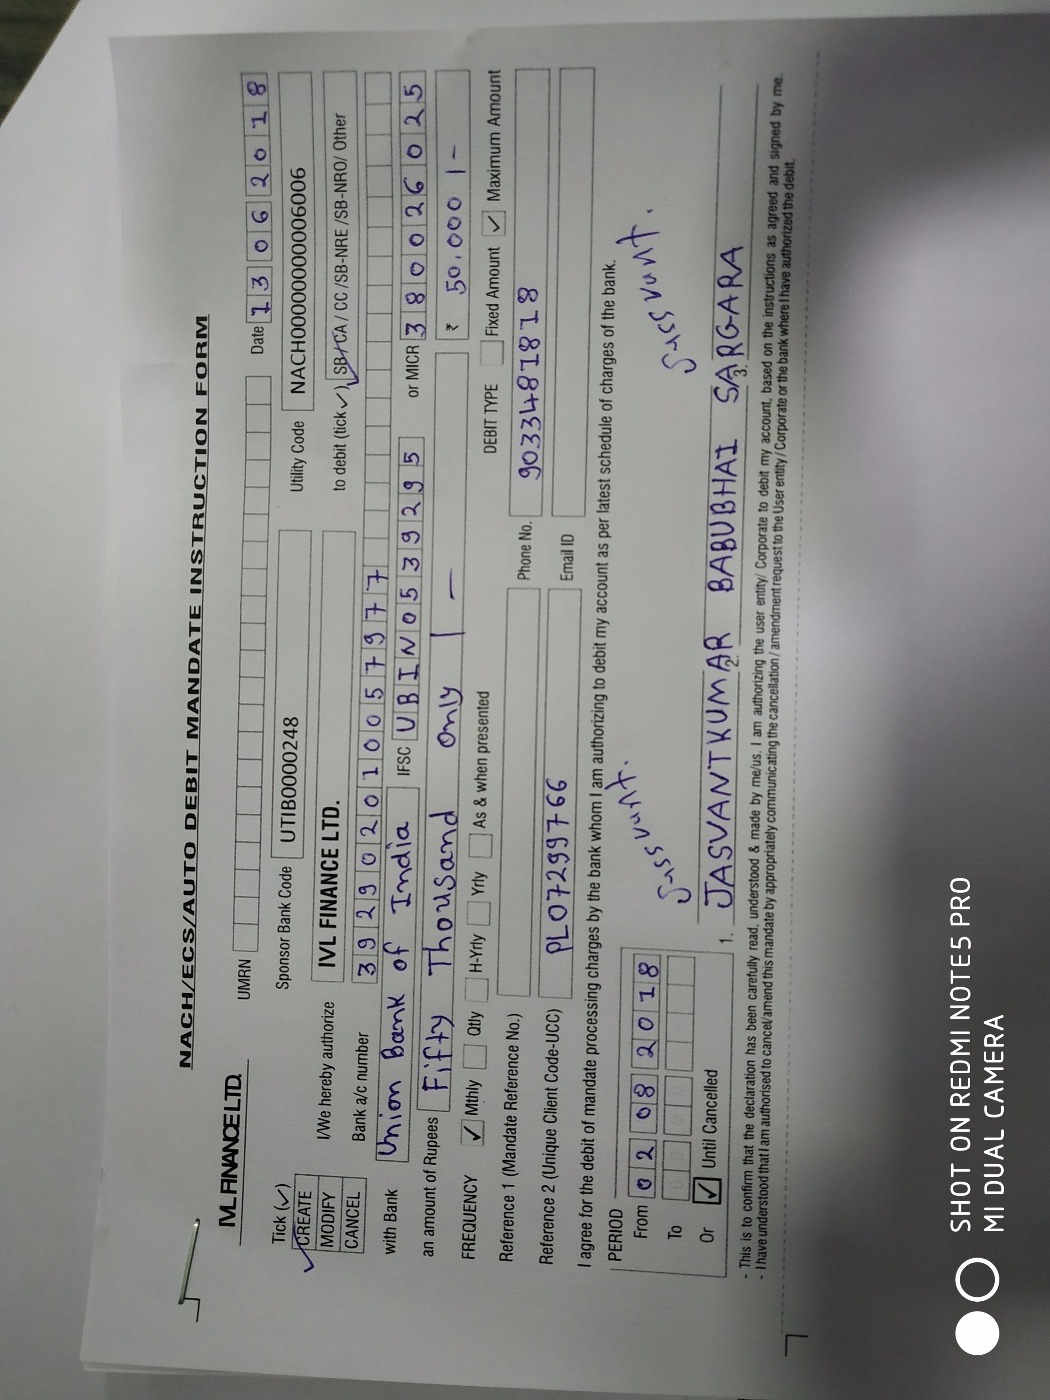 NACH/ECS/AUTO DEBIT MANDATE INSTRUCTION FORM
IVL FINANCE LTD.
UMRN Date 13062018
Tick (✓) Sponsor Bank Code UTIB0000248 Utility Code NACH00000000006006
✓ CREATE I/We hereby authorize IVL FINANCE LTD. to debit (tick ✓) SB / CA / CC / SB-NRE / SB-NRO / Other
MODIFY
CANCEL Bank a/c number 392902010057977
with Bank Union Bank of India IFSC UBIN0539295 or MICR 380026025
an amount of Rupees Fifty Thousand only /- ₹ 50,000 /-
FREQUENCY ✓ Mthly Qtly H-Yrly Yrly As & when presented DEBIT TYPE Fixed Amount ✓ Maximum Amount
Reference 1 (Mandate Reference No.) Phone No. 9033481818
Reference 2 (Unique Client Code-UCC) PL07299766 Email ID
I agree for the debit of mandate processing charges by the bank whom I am authorizing to debit my account as per latest schedule of charges of the bank.
PERIOD
From 02082018
To
Or ✓ Until Cancelled
1. JASVANTKUMAR 2. BABUBHAI 3. SARGARA
- This is to confirm that the declaration has been carefully read, understood & made by me/us. I am authorizing the user entity/ Corporate to debit my account, based on the instructions as agreed and signed by me.
- I have understood that I am authorised to cancel/amend this mandate by appropriately communicating the cancellation / amendment request to the User entity / Corporate or the bank where I have authorized the debit.
SHOT ON REDMI NOTE5 PRO
MI DUAL CAMERA